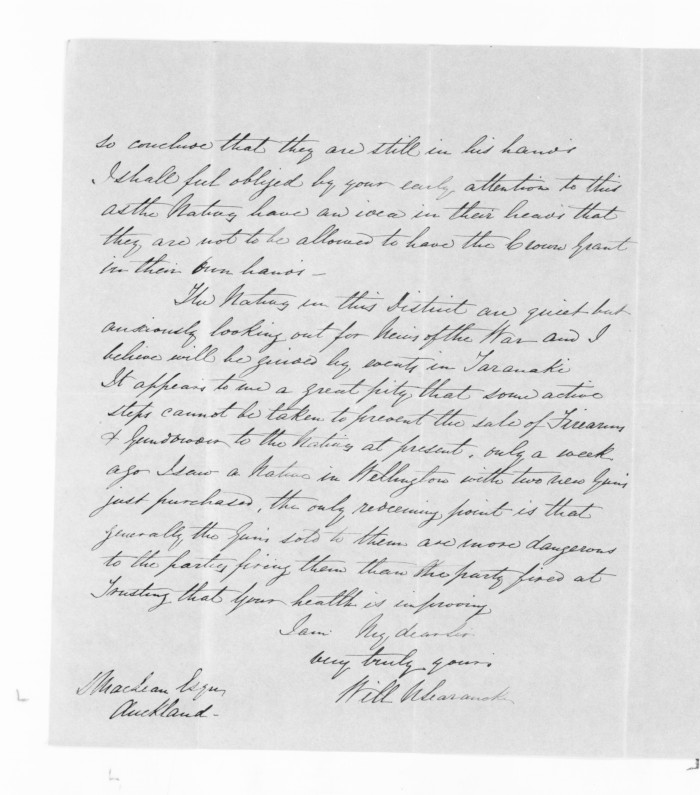 so conclude that they are still in his hands
I shall feel obliged by your early attention to this
as the Natives have an idea in their heads that
they are not to be allowed to have the Crown Grant
in their own hands -
The Natives in this District are quiet but
anxiously looking out for News of the War and I
believe will be guided by events in Taranaki
It appears to me a great pity that some active
steps cannot be taken to prevent the sale of Firearms
& Gunpowder to the Natives at present, only a week
ago I saw a Native in Wellington with two new Guns
just purchased, the only redeeming point is that
generally the Guns sold to them are more dangerous
to the parties firing them than the party fired at
Trusting that your health is improving
I am My dear Sir
very truly yours
Will N Searancke
D MacLean Esqre
Auckland -